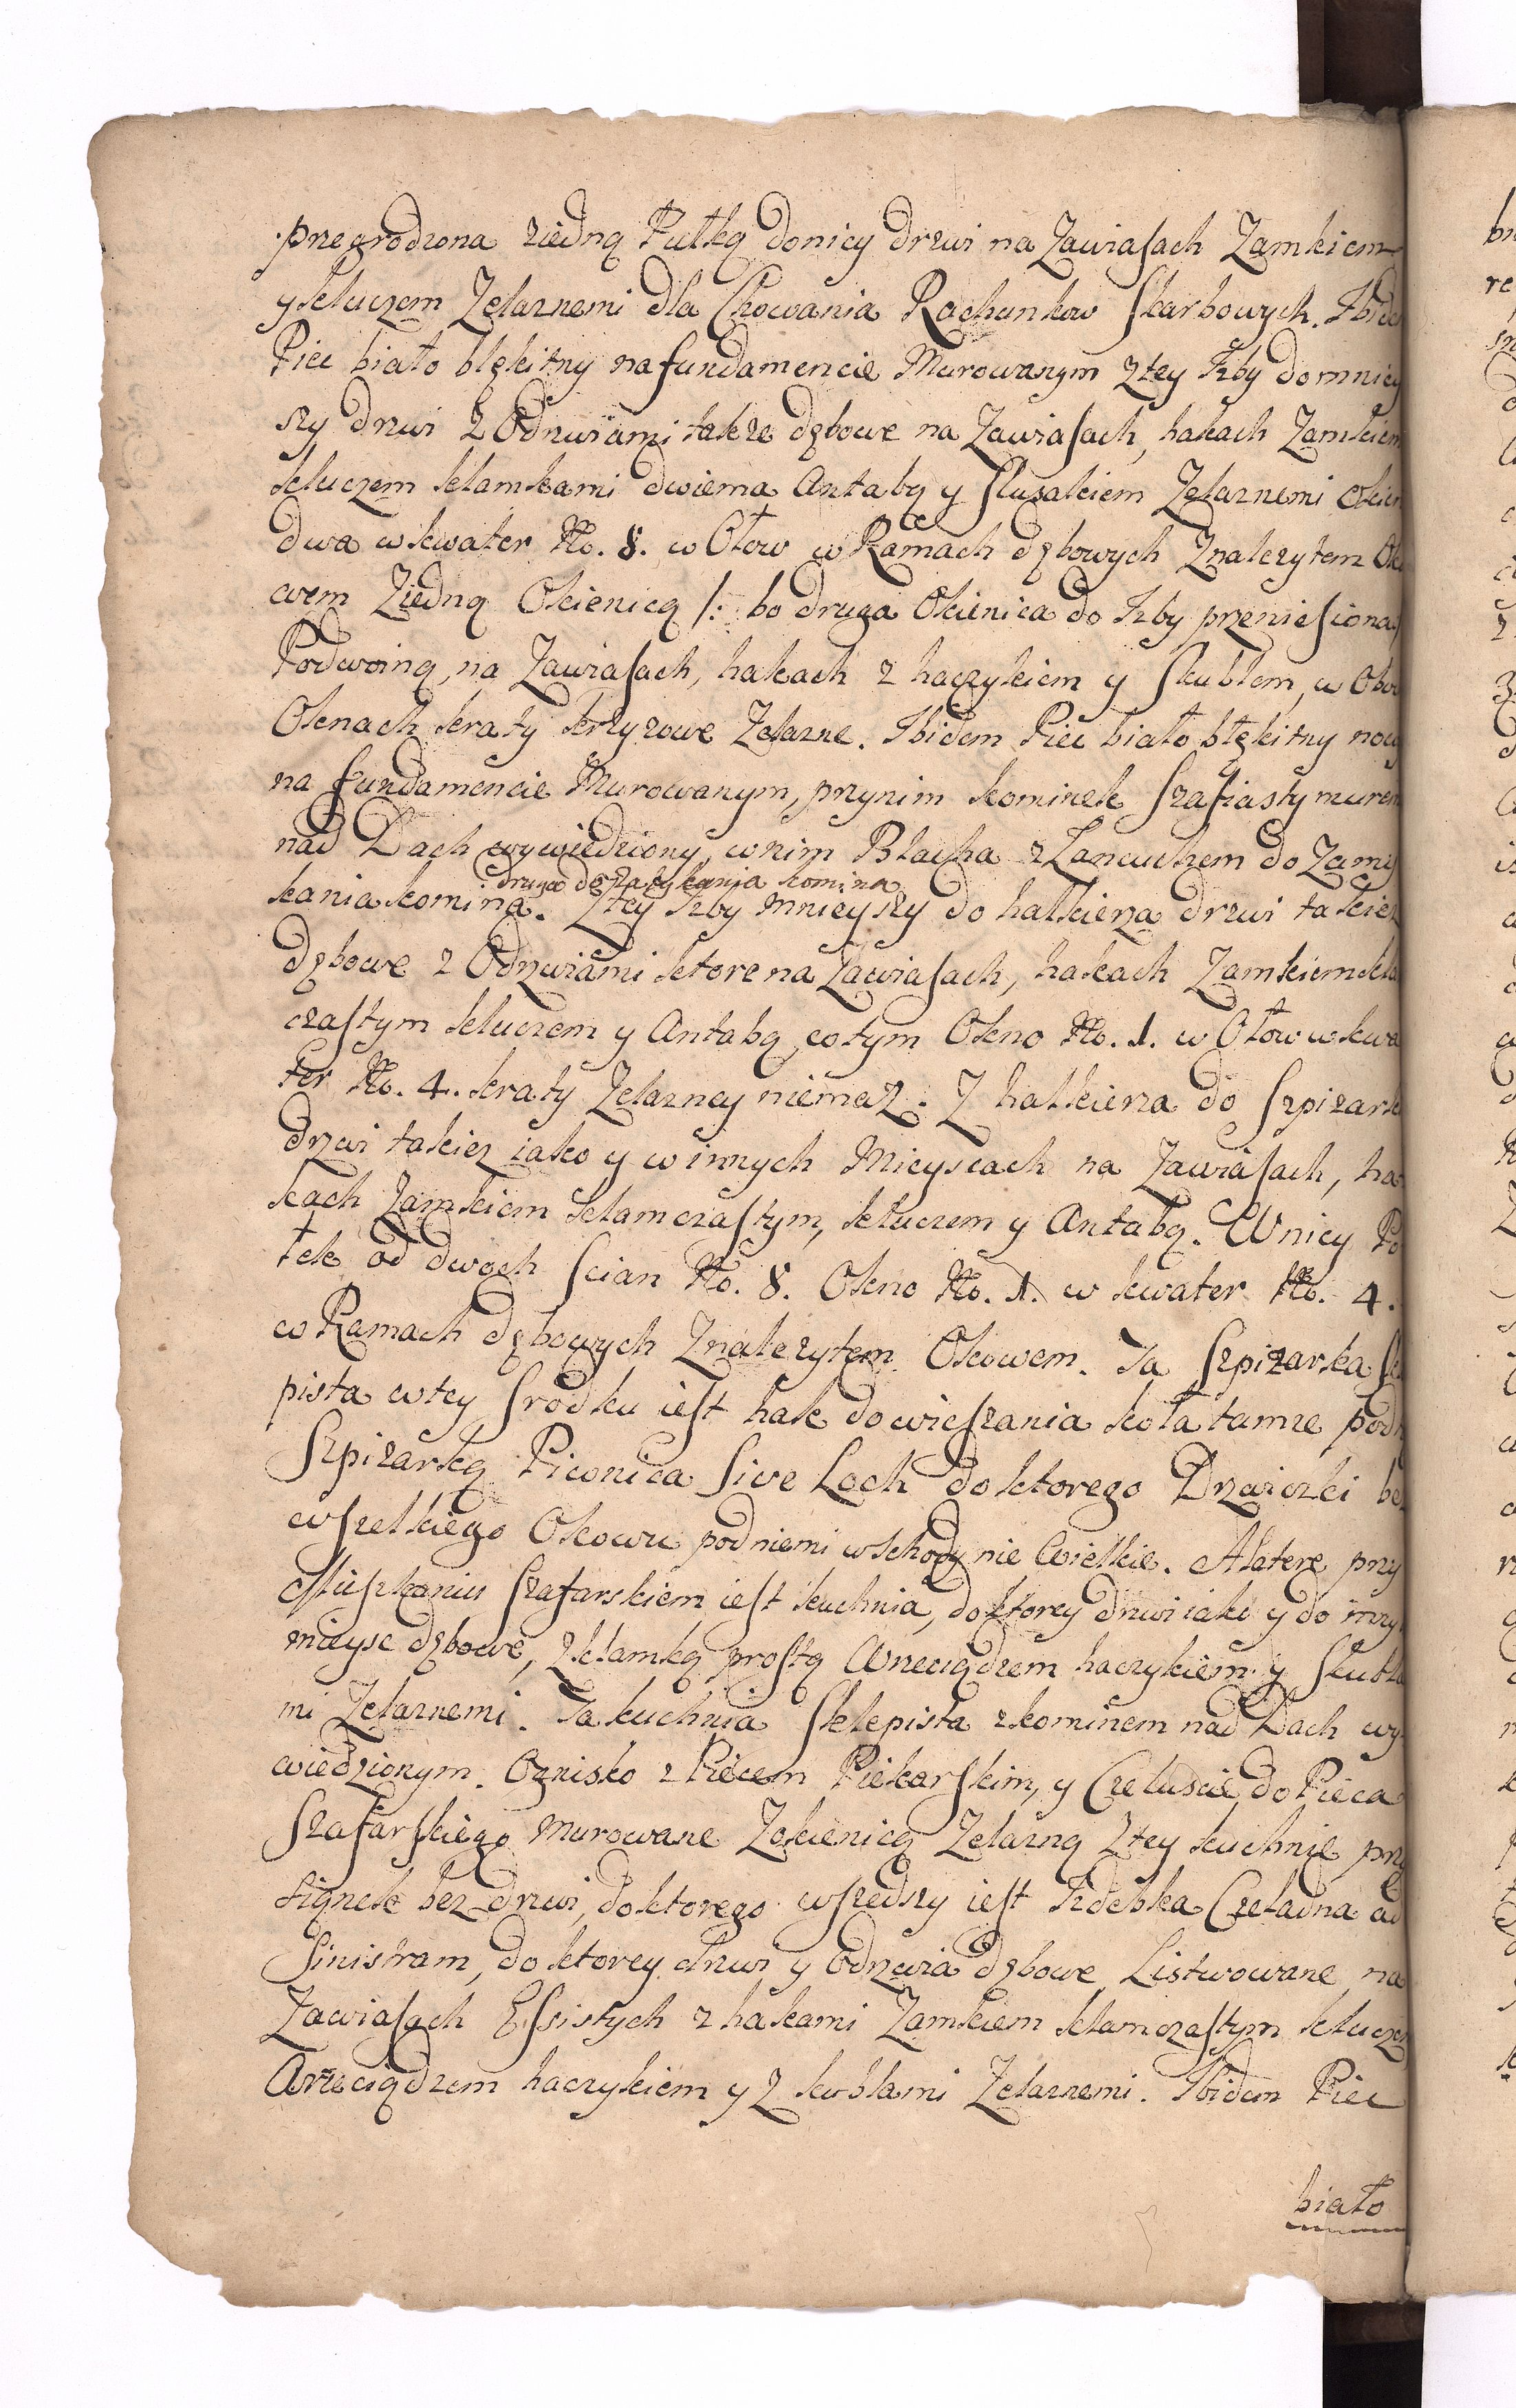 przegrodzona ziedną Pułką doniey drzwi na Zawiasach Zamkiem
y kluczem Zelaznemi dla Chowania Rachunkow Skarbowych. Ibidem
Piec biało błękitny na fundamencie Murowanym z tey Izby do mniey
szy drzwi z Odrzwiami także dębowe na Zawiasach, hakach Zamkiem
kluczem klamkami dwiema Antabą y Skuzakiem Zelaznemi Okien
dwa w kwater No. 8. w Ołow w Ramach dębowych Znależytem Oko
wem Ziedną Okienicą /: bo druga Okienica do Izby przeniesiona/
Podwoiną, na Zawiasach, hakach z haczykiem y Skublem, w Obu
Oknach kraty krzyzowe Zelazne. Ibidem Piec biało błękitny nowy
na fundamencie Murowanym, przynim kominek Szafiasty murem
nad Dach wywiedziony, wnim Blacha z Łancuchem do Zamy
druga do Zatykania komina
kania komina. Ztey Izby mnieyszy do halkierza drzwi takież
dębowe z Odrzwiami ktore na Zawiasach, hakach Zamkiem kla
czastym kluczem y Antabą, wtym Okno No. 1. w Ołow w kwa
ter No. 4. kraty Zelazney niemaz. Z halkierza do Szpizark
drzwi takiez iako y w innych Mieyscach na Zawiasach, ha
kach Zamkiem klamczastym, kluczem y Antabą. Wniey Po
łek od dwoch Scian No. 8. Okno No. 1. w kwater No. 4.
w Ramach dębowych Znależytem Okowem. Ta Szpizarka Skle
pista wtey Srodku iest hak do wieszania koła tamze pod tą
Szpizarką Piwnica Sive Loch do ktorego Drzwiczki bez
wszelkiego Okowu pod niemi wschody nie Wielkie. A latere przy
Mieszkaniu Szafarskiem iest kuchnia, do ktorey drzwi iako y do innych
mieysc dębowe, z klamką prostą Wrzeciądzem haczykiem y Skubla
mi Zelaznemi. Ta kuchnia Sklepista z kominem nad Dach wy-
wiedzionym. Ognisko z Piecem Piekarskim, y Czeluscie do Pieca
Szafarskiego murowane Zokienicą Zelazną Ztey kuchnie przy
sionek bez drzwi, do ktorego wszedszy iest Izdebka Czeladna ad
Sinistram, do ktorey drzwi y Odrzwia dębowe Listwowane, na
Zawiasach Essistych z hakami Zamkiem klamczastym kluczem
Wrzeciądzem haczykiem y z kublami Zelaznemi. Ibidem Piec
biało